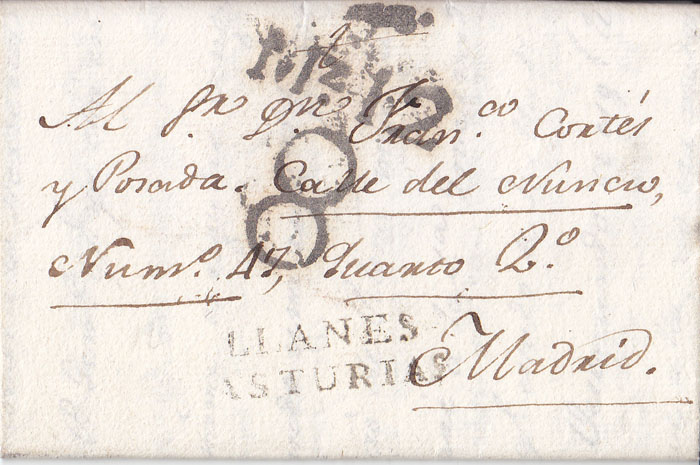 Al Sr. Dn. Fran.co Cortés
y Posada. Calle del Nuncio,
Num.o 47, Quarto 2.o
LLANES
ASTURIAS
Madrid.